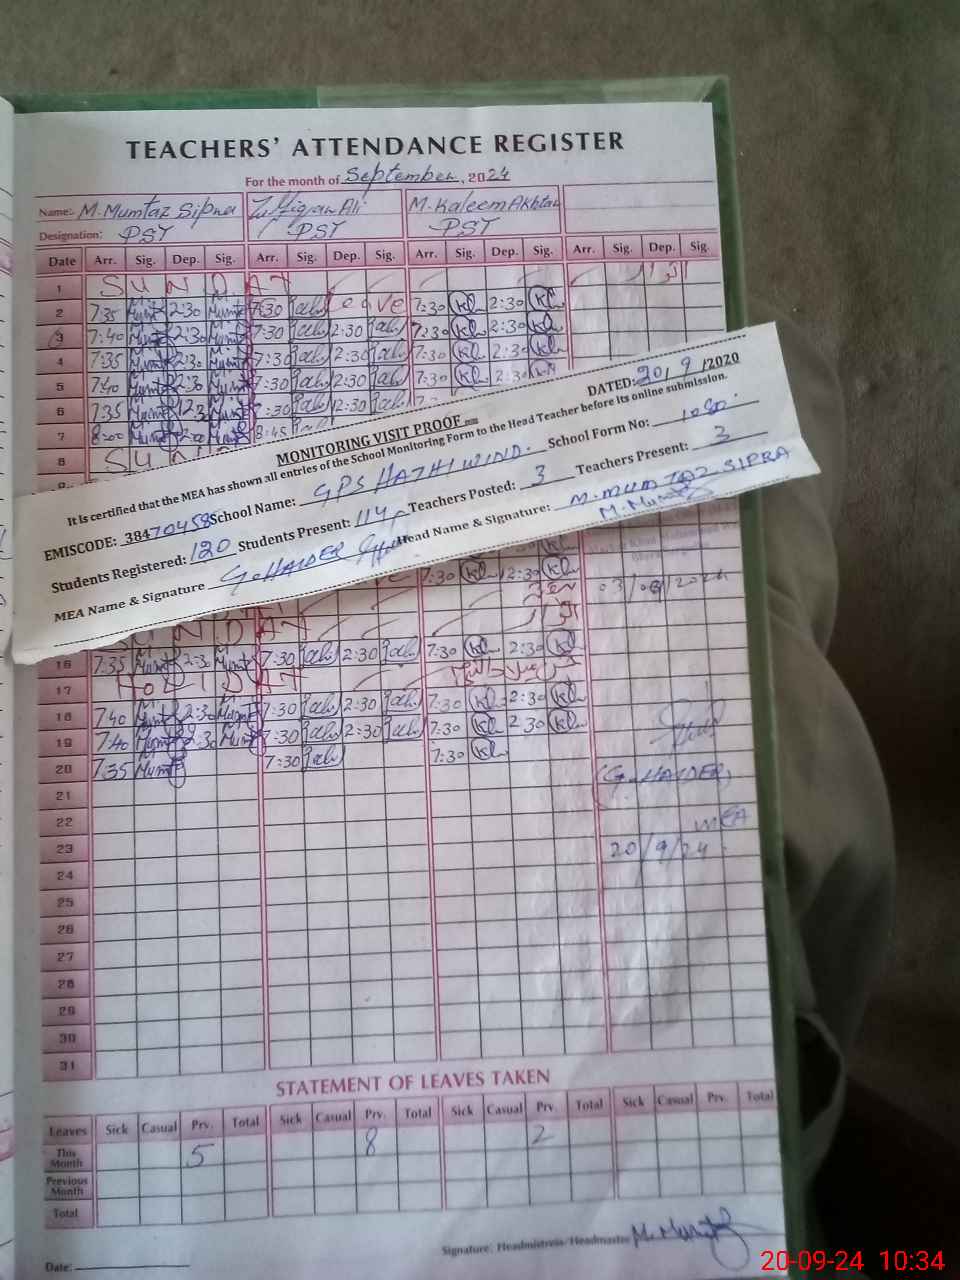 TEACHERS' ATTENDANCE REGISTER
For the month of September, 2024
Name:- M.Mumtaz Sipra Zulfiqar Ali M.Kaleem Akhtar
Designation: PST PST PST
Date Arr. Sig. Dep. Sig. Arr. Sig. Dep. Sig. Arr. Sig. Dep. Sig. Arr. Sig. Dep. Sig.
1 SUNDAY اتوار
2 7:35 Mumt 2:30 Mumt 7:30 Leave 7:30 Kl 2:30 Kl
3 7:40 Mumt 2:30 Mumt 7:30 2:30 7:30 Kl 2:30 Kl
4 7:35 Mumt 2:30 Mumt 7:30 2:30 7:30 Kl 2:30 Kl
5 7:40 Mumt 2:30 Mumt 7:30 2:30 7:30 Kl 2:30
6 7:35 Mumt 12:30 Mumt 7:30 12:30
7 8:00 Mumt Mumt 8:45
8 SUN
MONITORING VISIT PROOF DATED: 20/9/2020
It is certified that the MEA has shown all entries of the School Monitoring Form to the Head Teacher before its online submission.
EMISCODE: 38470458 School Name: GPS HATHIWIND. School Form No:
Students Registered: 120 Students Present: 114 Teachers Posted: 3 Teachers Present: 3
MEA Name & Signature G.HAIDER Head Name & Signature: M.MUMTAZ SIPRA
M.Mumtaz
7:30 Kl 12:30 Kl
03/09/2024
SUNDAY اتوار
16 7:35 Mumt 2:30 Mumt 7:30 2:30 7:30 Kl 2:30 Kl
17 HOLIDAY
18 7:40 Mumt 2:30 Mumt 7:30 2:30 7:30 Kl 2:30 Kl
19 7:40 Mumt 2:30 Mumt 7:30 2:30 7:30 Kl 2:30 Kl
20 7:35 Mumt 7:30 7:30 Kl
(G.HAIDER)
21
22
MEA
23
20/9/24
24
25
26
27
28
29
30
31
STATEMENT OF LEAVES TAKEN
Leaves Sick Casual Prv. Total Sick Casual Prv. Total Sick Casual Prv. Total Sick Casual Prv. Total
This Month 5 8 2
Previous Month
Total
Signature: Headmistress/Headmaster M.Mumtaz
Date:
20-09-24 10:34